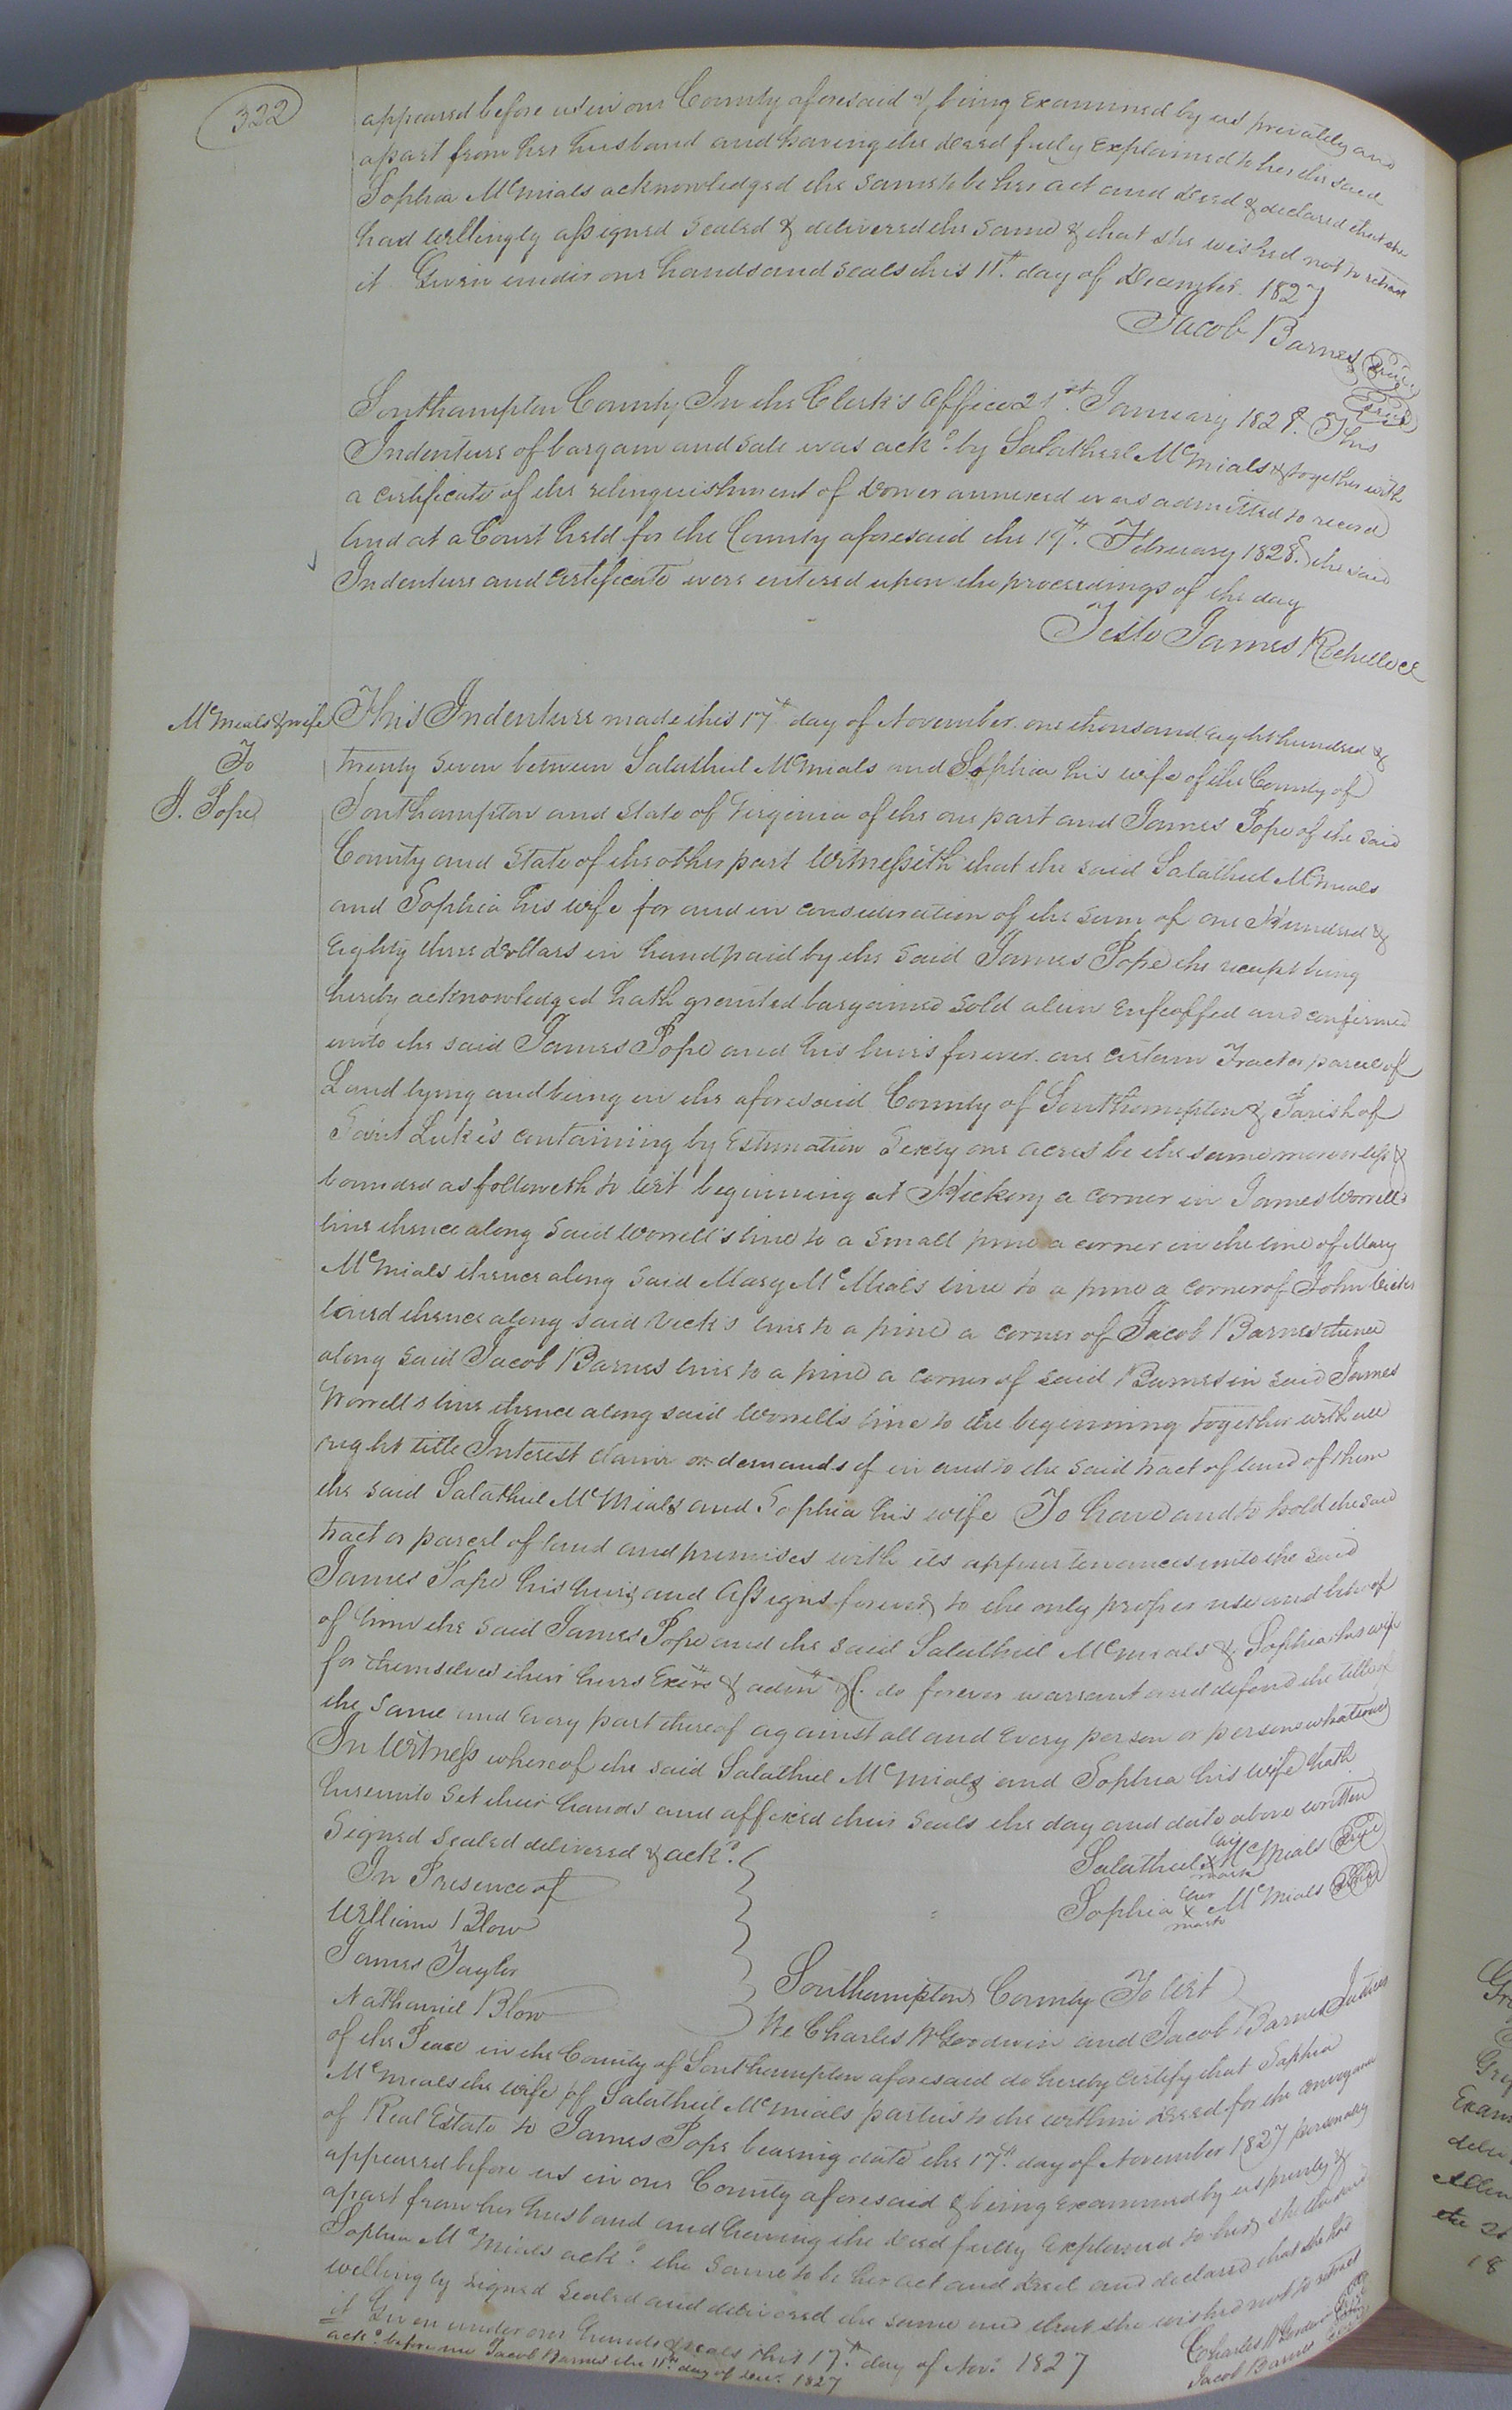 322
appeared before us in our County aforesaid & being Examined by us privately and
apart from her husband and having the deed fully Explained to her the said
Sophia McMials acknowledged the same to be her act and deed & declared that she
had willingly assigned Sealed & delivered the same & that she wished not to retract
it Given under our hands and seals this 11th. day of December 1827
Jacob Barnes
Southampton County In the Clerk's Office 21st. January 1828. This
Indenture of bargain and sale was ackd. by Salathiel McMials & together with
a certificate of the relinquishment of Dower annexed was admitted to record
And at a Court held for the County aforesaid the 19th. February 1828. the said
Indenture and certificate were entered upon the proceedings of the day
Teste James Rochelle
McMials & wife
To
J. Pope
This Indenture made this 17th day of November one thousand Eight hundred &
twenty Seven between Salathiel McMials and Sophia his wife of the County of
Southampton and State of Virginia of the one part and James Pope of the said
County and State of the other part Witnesseth that the said Salathiel McMials
and Sophia his wife for and in consideration of the sum of one Hundred &
Eighty three dollars in hand paid by the said James Pope the receipt being
hereby acknowledged hath granted bargained sold alien Enfeoffed and confirmed
unto the said James Pope and his heirs forever one certain Tract or parcel of
Land lying and being in the aforesaid County of Southampton & Parish of
Saint Luke's containing by Estimation Sixty one acres be the same more or less &
bounded as followeth to wit beginning at Hickory a corner in James Worrell's
line thence along said Worrell's line to a small pine a corner in the line of Mary
McMials thence along said Mary McMials line to a pine a corner of John Vicks
land thence along said Vick's line to a pine a corner of Jacob Barnes thence
along said Jacob Barnes line to a pine a corner of said Barnes in said James
Worrell's line thence along said Worrell's line to the beginning together with all
right title Interest claim or demands of in and to the said tract of land of them
the said Salathiel McMials and Sophia his wife To have and to hold the said
tract or parcel of land and premises with its appurtenances unto the said
James Pope his heirs and Assigns forever to the only proper use and behoof
of him the said James Pope and the said Salathiel McMials & Sophia his wife
for themselves their heirs Exers & admrs &c. do forever warrant and defend the title of
the same and Every part thereof against all and Every person or persons whatever
In Witness whereof the said Salathiel McMials and Sophia his wife hath
hereunto Set their hands and affixed their Seals the day and date above written
Signed Sealed delivered & ackd.
In Presence of
William Blow
James Taylor
Nathaniel Blow
Salathiel his x mark McMials
Sophia her x mark McMials
Southampton County To Wit
We Charles W Goodwin and Jacob Barnes Justices
of the Peace in the County of Southampton aforesaid do hereby certify that Sophia
McMials the wife of Salathiel McMials parties to the within deed for the conveyance
of Real Estate to James Pope bearing date the 17th. day of November 1827 personally
appeared before us in our County aforesaid & being Examined by us privily &
apart from her husband and having the deed fully Explained to her, she the said
Sophia McMials ackd. the same to be her act and deed and declared that she had
willingly signed sealed and delivered the same and that she wished not to retract
it Given under our hands & seals this 17th. day of Nov. 1827
Charles W Goodwin
Jacob Barnes
ackd. before me Jacob Barnes the 11th. day of Dec. 1827